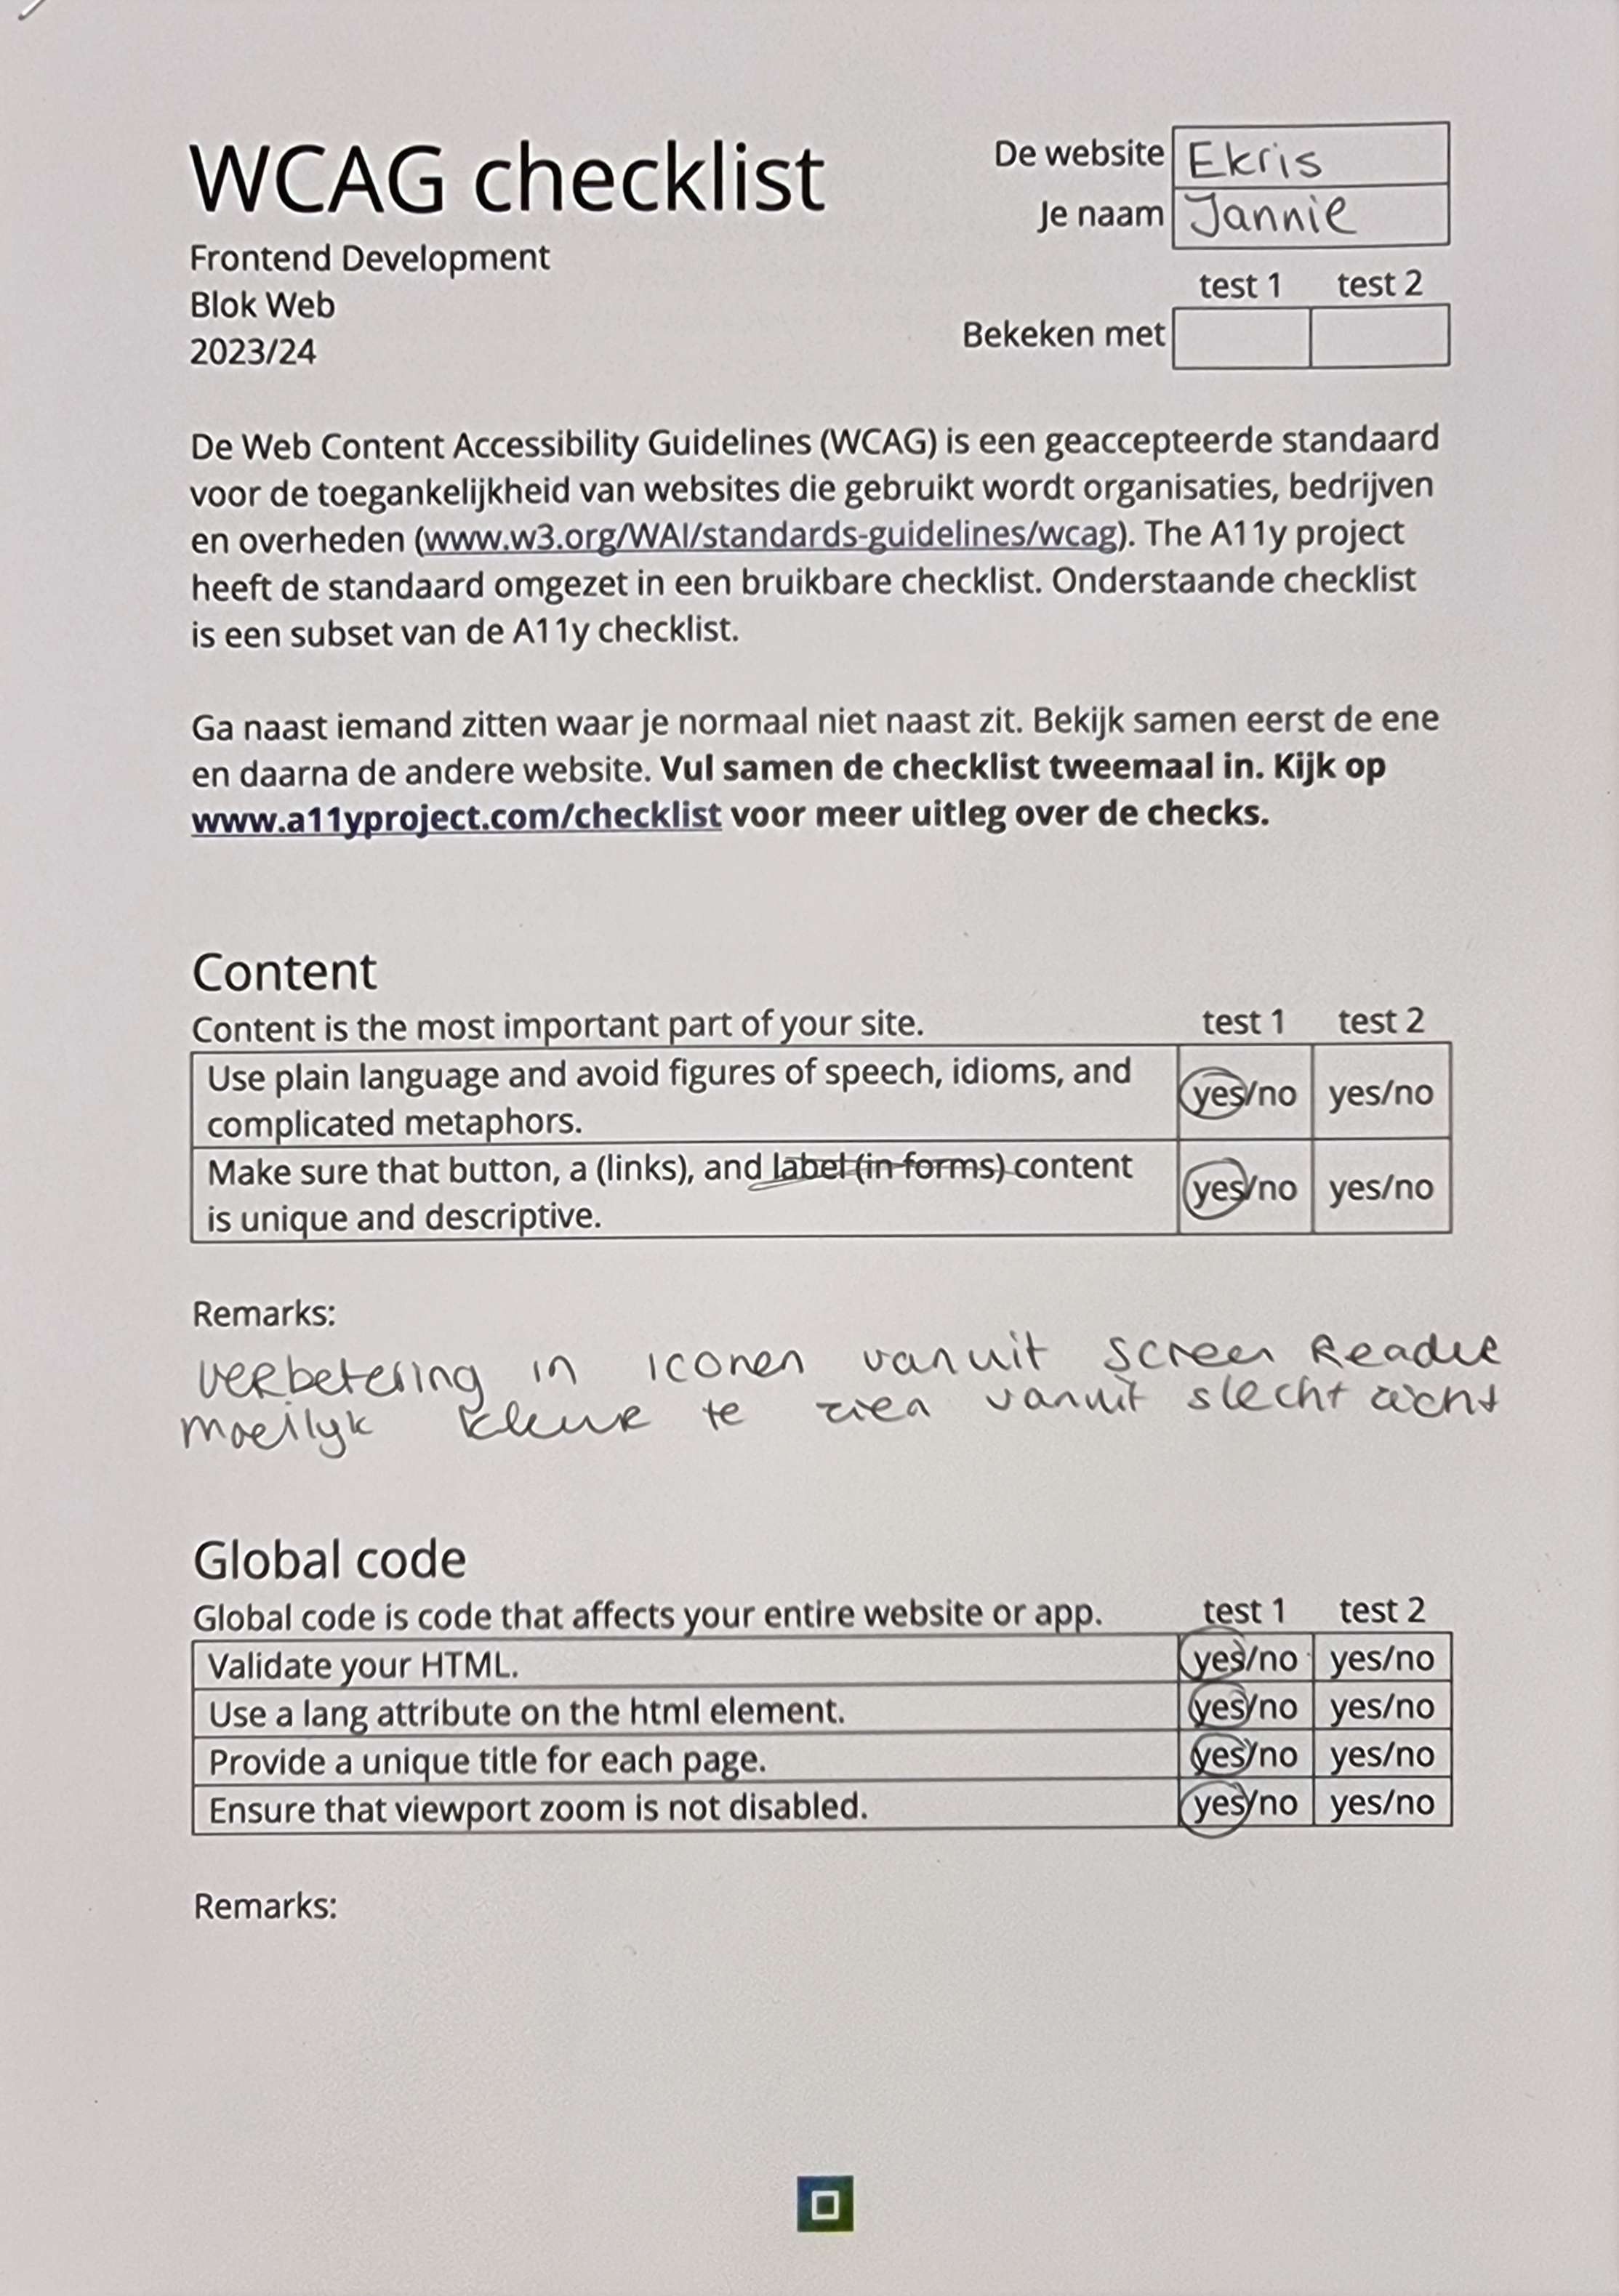 WCAG checklist
Frontend Development
Blok Web
2023/24
De website Ekris
Je naam Jannie
test 1 test 2
Bekeken met
De Web Content Accessibility Guidelines (WCAG) is een geaccepteerde standaard
voor de toegankelijkheid van websites die gebruikt wordt organisaties, bedrijven
en overheden (www.w3.org/WAI/standards-guidelines/wcag). The A11y project
heeft de standaard omgezet in een bruikbare checklist. Onderstaande checklist
is een subset van de A11y checklist.
Ga naast iemand zitten waar je normaal niet naast zit. Bekijk samen eerst de ene
en daarna de andere website. Vul samen de checklist tweemaal in. Kijk op
www.a11yproject.com/checklist voor meer uitleg over de checks.
Content
Content is the most important part of your site. test 1 test 2
Use plain language and avoid figures of speech, idioms, and
complicated metaphors. yes/no yes/no
Make sure that button, a (links), and label (in forms) content
is unique and descriptive. yes/no yes/no
Remarks:
verbetering in iconen vanuit screen Reader
moeilyk kleur te zien vanuit slecht zicht
Global code
Global code is code that affects your entire website or app. test 1 test 2
Validate your HTML. yes/no yes/no
Use a lang attribute on the html element. yes/no yes/no
Provide a unique title for each page. yes/no yes/no
Ensure that viewport zoom is not disabled. yes/no yes/no
Remarks: